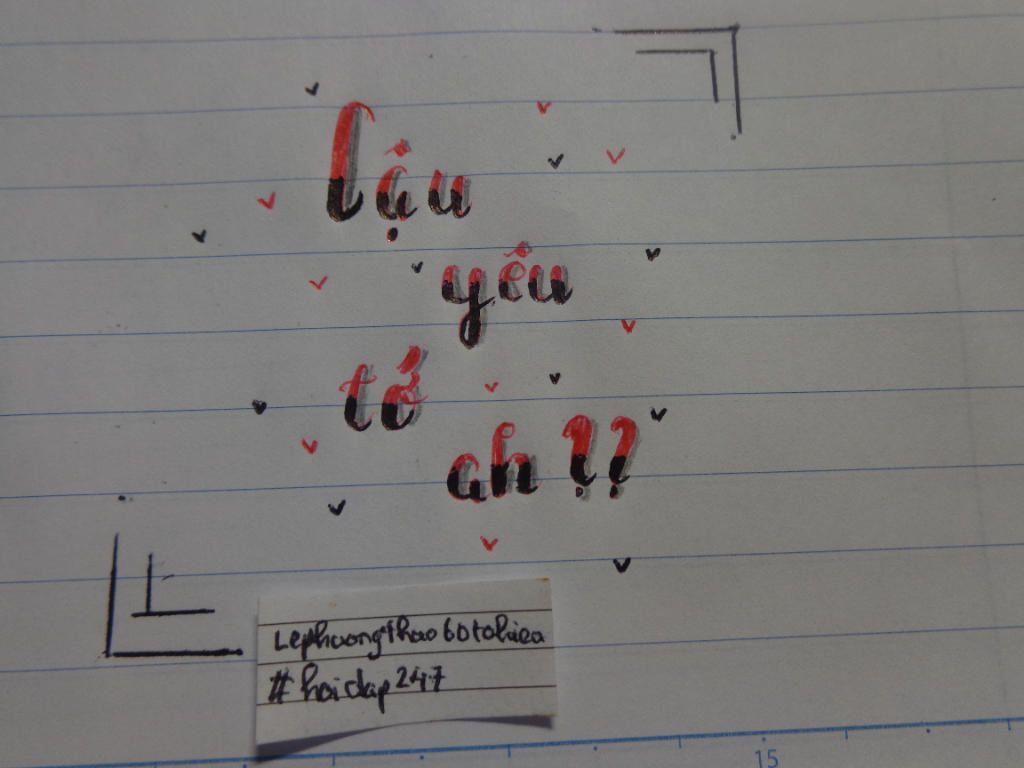 lậu
yêu
tớ
ah??
Lephuongthao60tohieu
#hoidap247
15